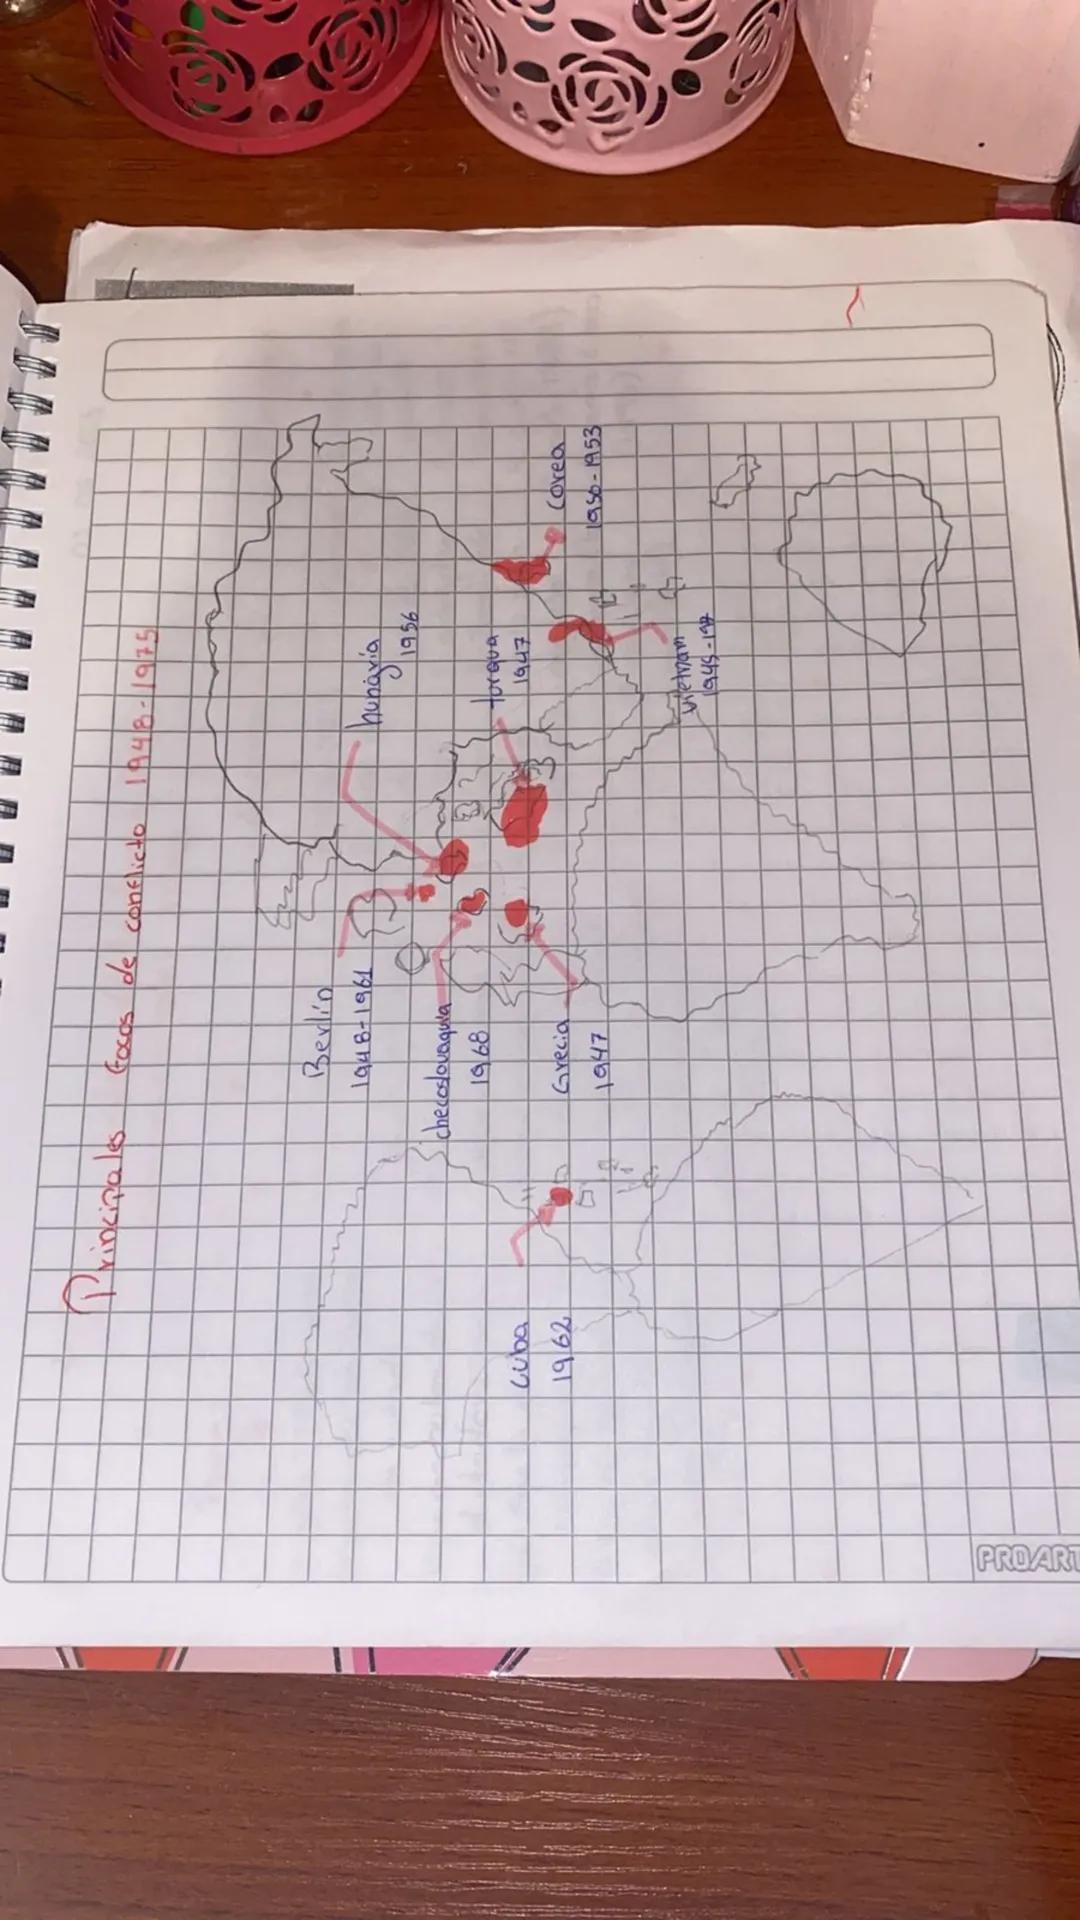 Principales focos de conflicto 1948-1975
Berlín
1948-1961
hungría
1956
checoslovaquia
1968
turqua
1947
Corea
1950-1953
Grecia
1947
vietnam
Cuba
1962
PROART